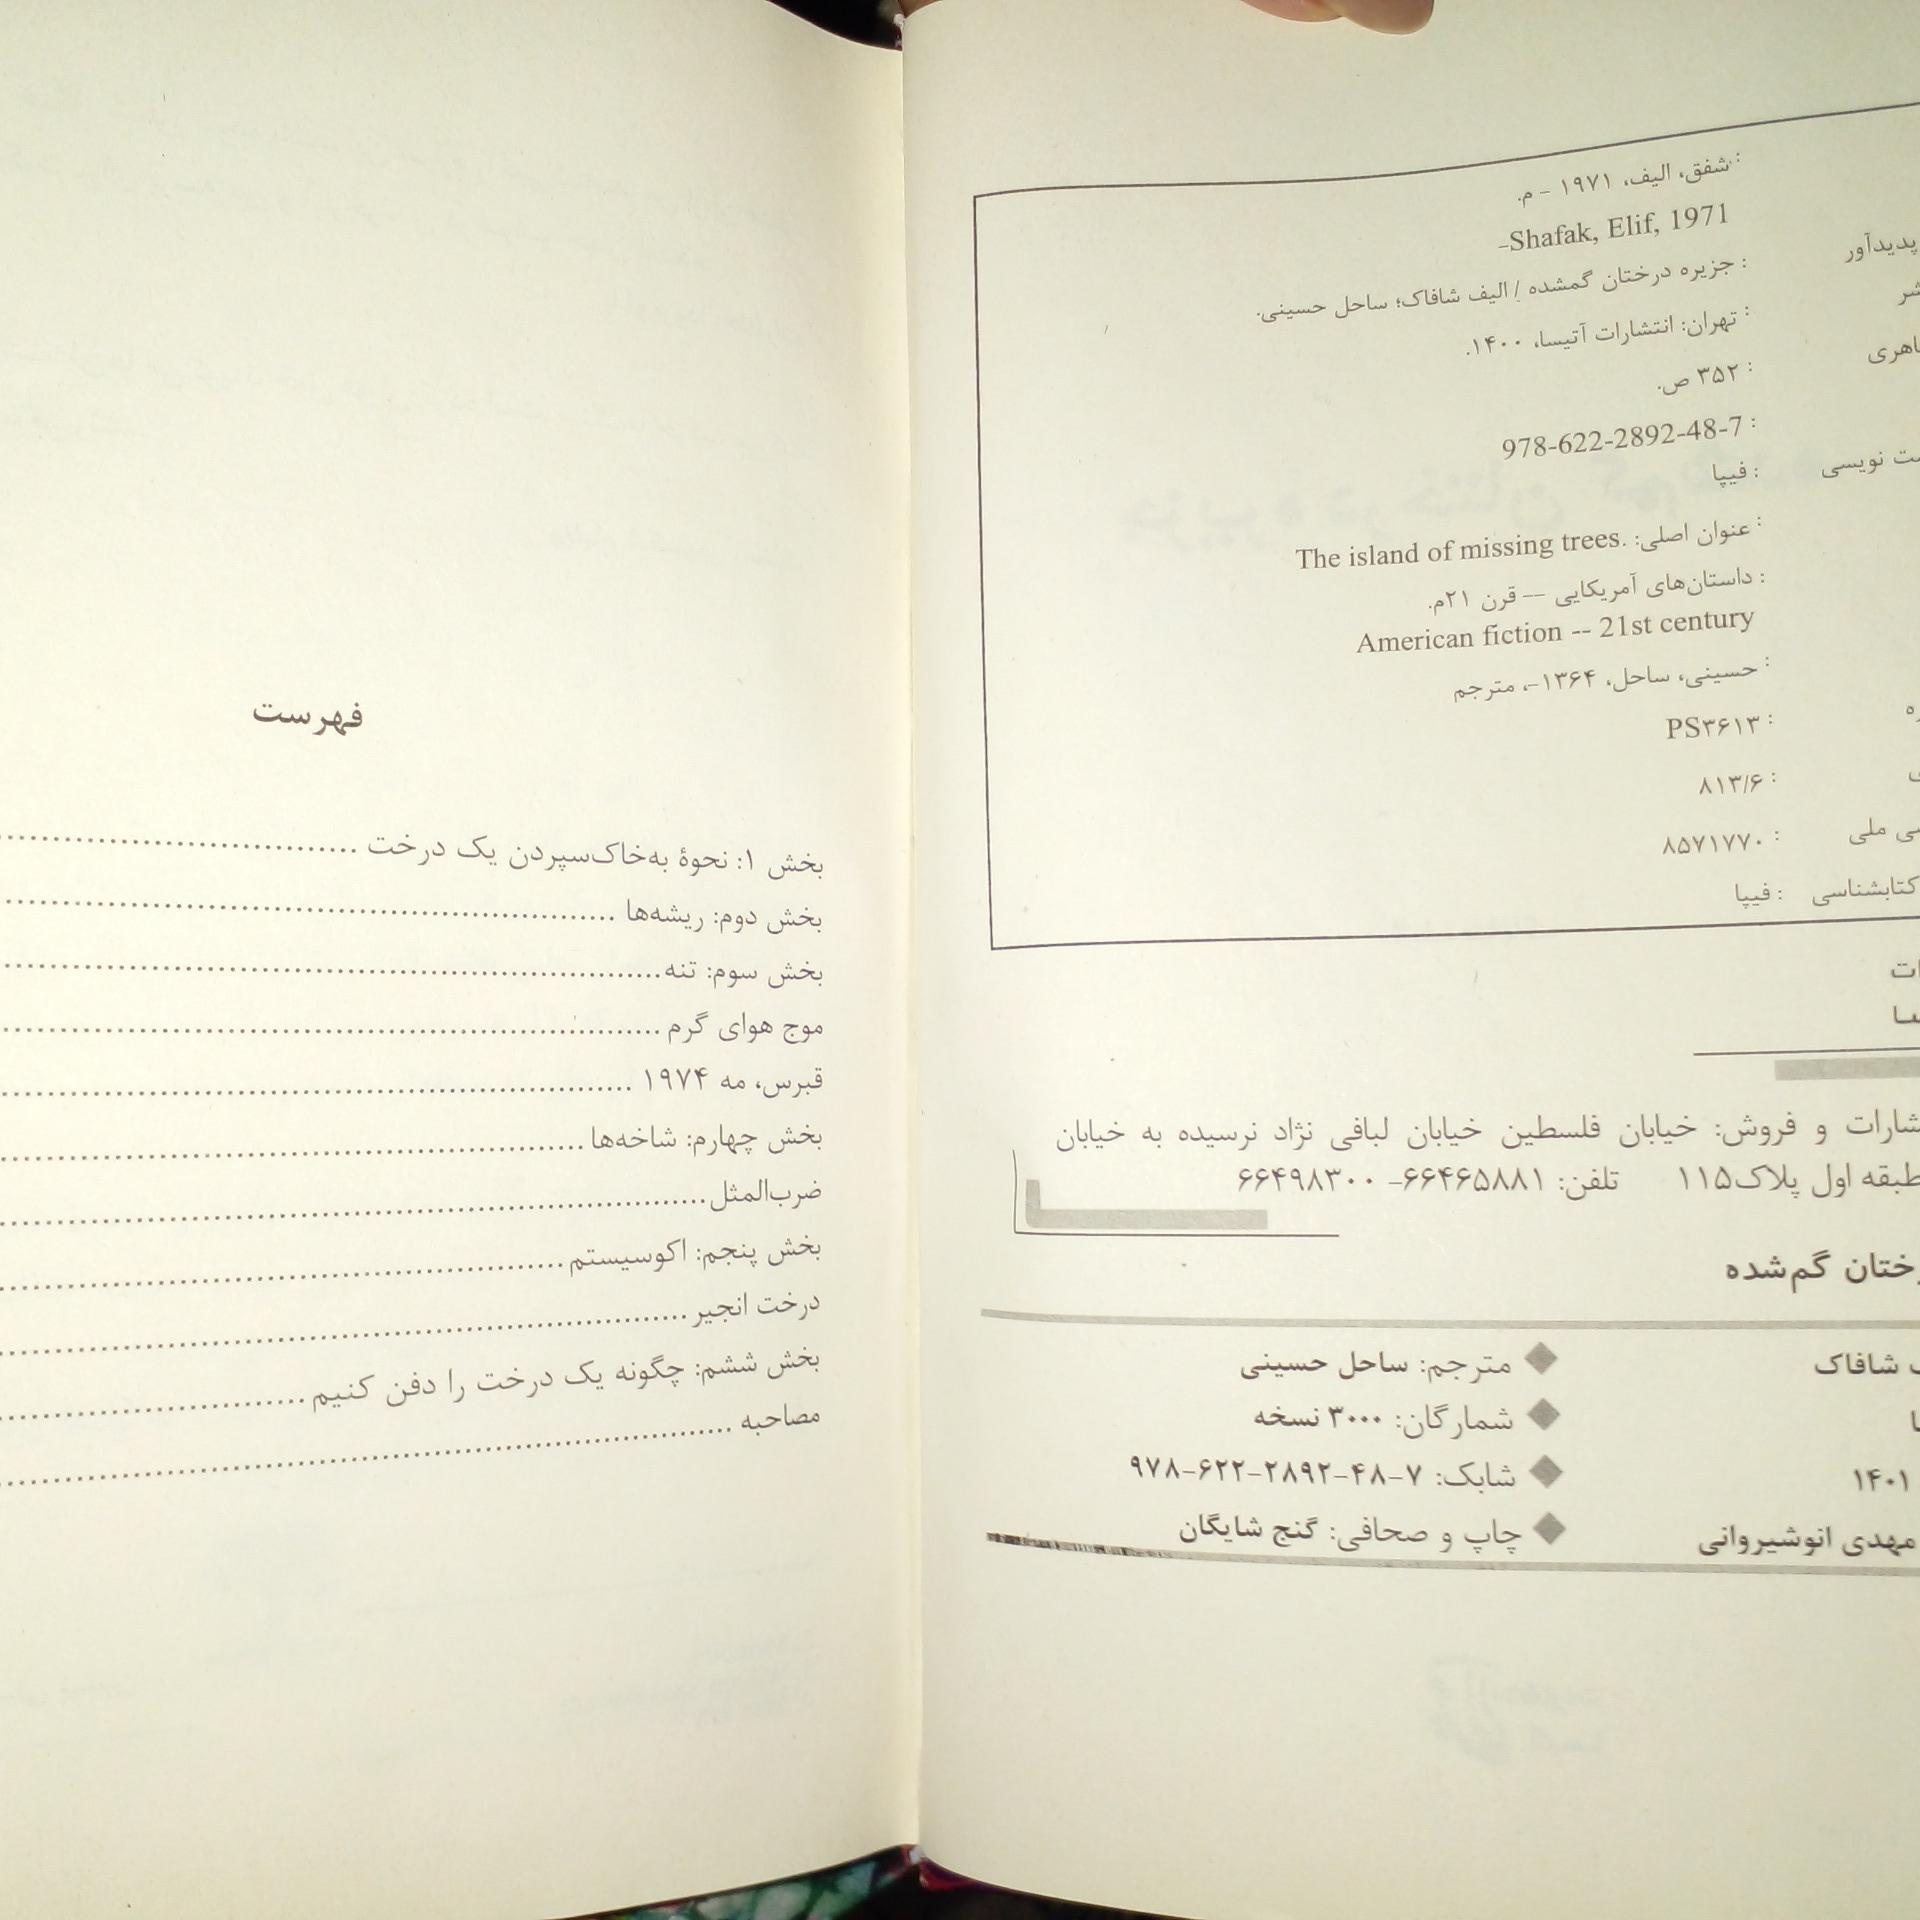 : شفق، الیف، ۱۹۷۱ - م.
Shafak, Elif, 1971-
پدیدآور : جزیره درختان گمشده / الیف شافاک؛ ساحل حسینی.
: تهران: انتشارات آتیسا، ۱۴۰۰.
: ۳۵۲ ص.
: 978-622-2892-48-7
نویسی : فیپا
: عنوان اصلی: .The island of missing trees
: داستان‌های آمریکایی -- قرن ۲۱م.
American fiction -- 21st century
: حسینی، ساحل، ۱۳۶۴-، مترجم
: PS۳۶۱۳
: ۸۱۳/۶
ملی : ۸۵۷۱۷۷۰
کتابشناسی : فیپا
و فروش: خیابان فلسطین خیابان لبافی نژاد نرسیده به خیابان
طبقه اول پلاک۱۱۵ تلفن: ۶۶۴۶۵۸۸۱- ۶۶۴۹۸۳۰۰
گم‌شده
شافاک
◆ مترجم: ساحل حسینی
◆ شمارگان: ۳۰۰۰ نسخه
۱۴۰۱ ◆ شابک: ۷-۴۸-۲۸۹۲-۶۲۲-۹۷۸
مهدی انوشیروانی ◆ چاپ و صحافی: گنج شایگان
فهرست
بخش ۱: نحوهٔ به‌خاک‌سپردن یک درخت
بخش دوم: ریشه‌ها
بخش سوم: تنه
موج هوای گرم
قبرس، مه ۱۹۷۴
بخش چهارم: شاخه‌ها
ضرب‌المثل
بخش پنجم: اکوسیستم
درخت انجیر
بخش ششم: چگونه یک درخت را دفن کنیم
مصاحبه